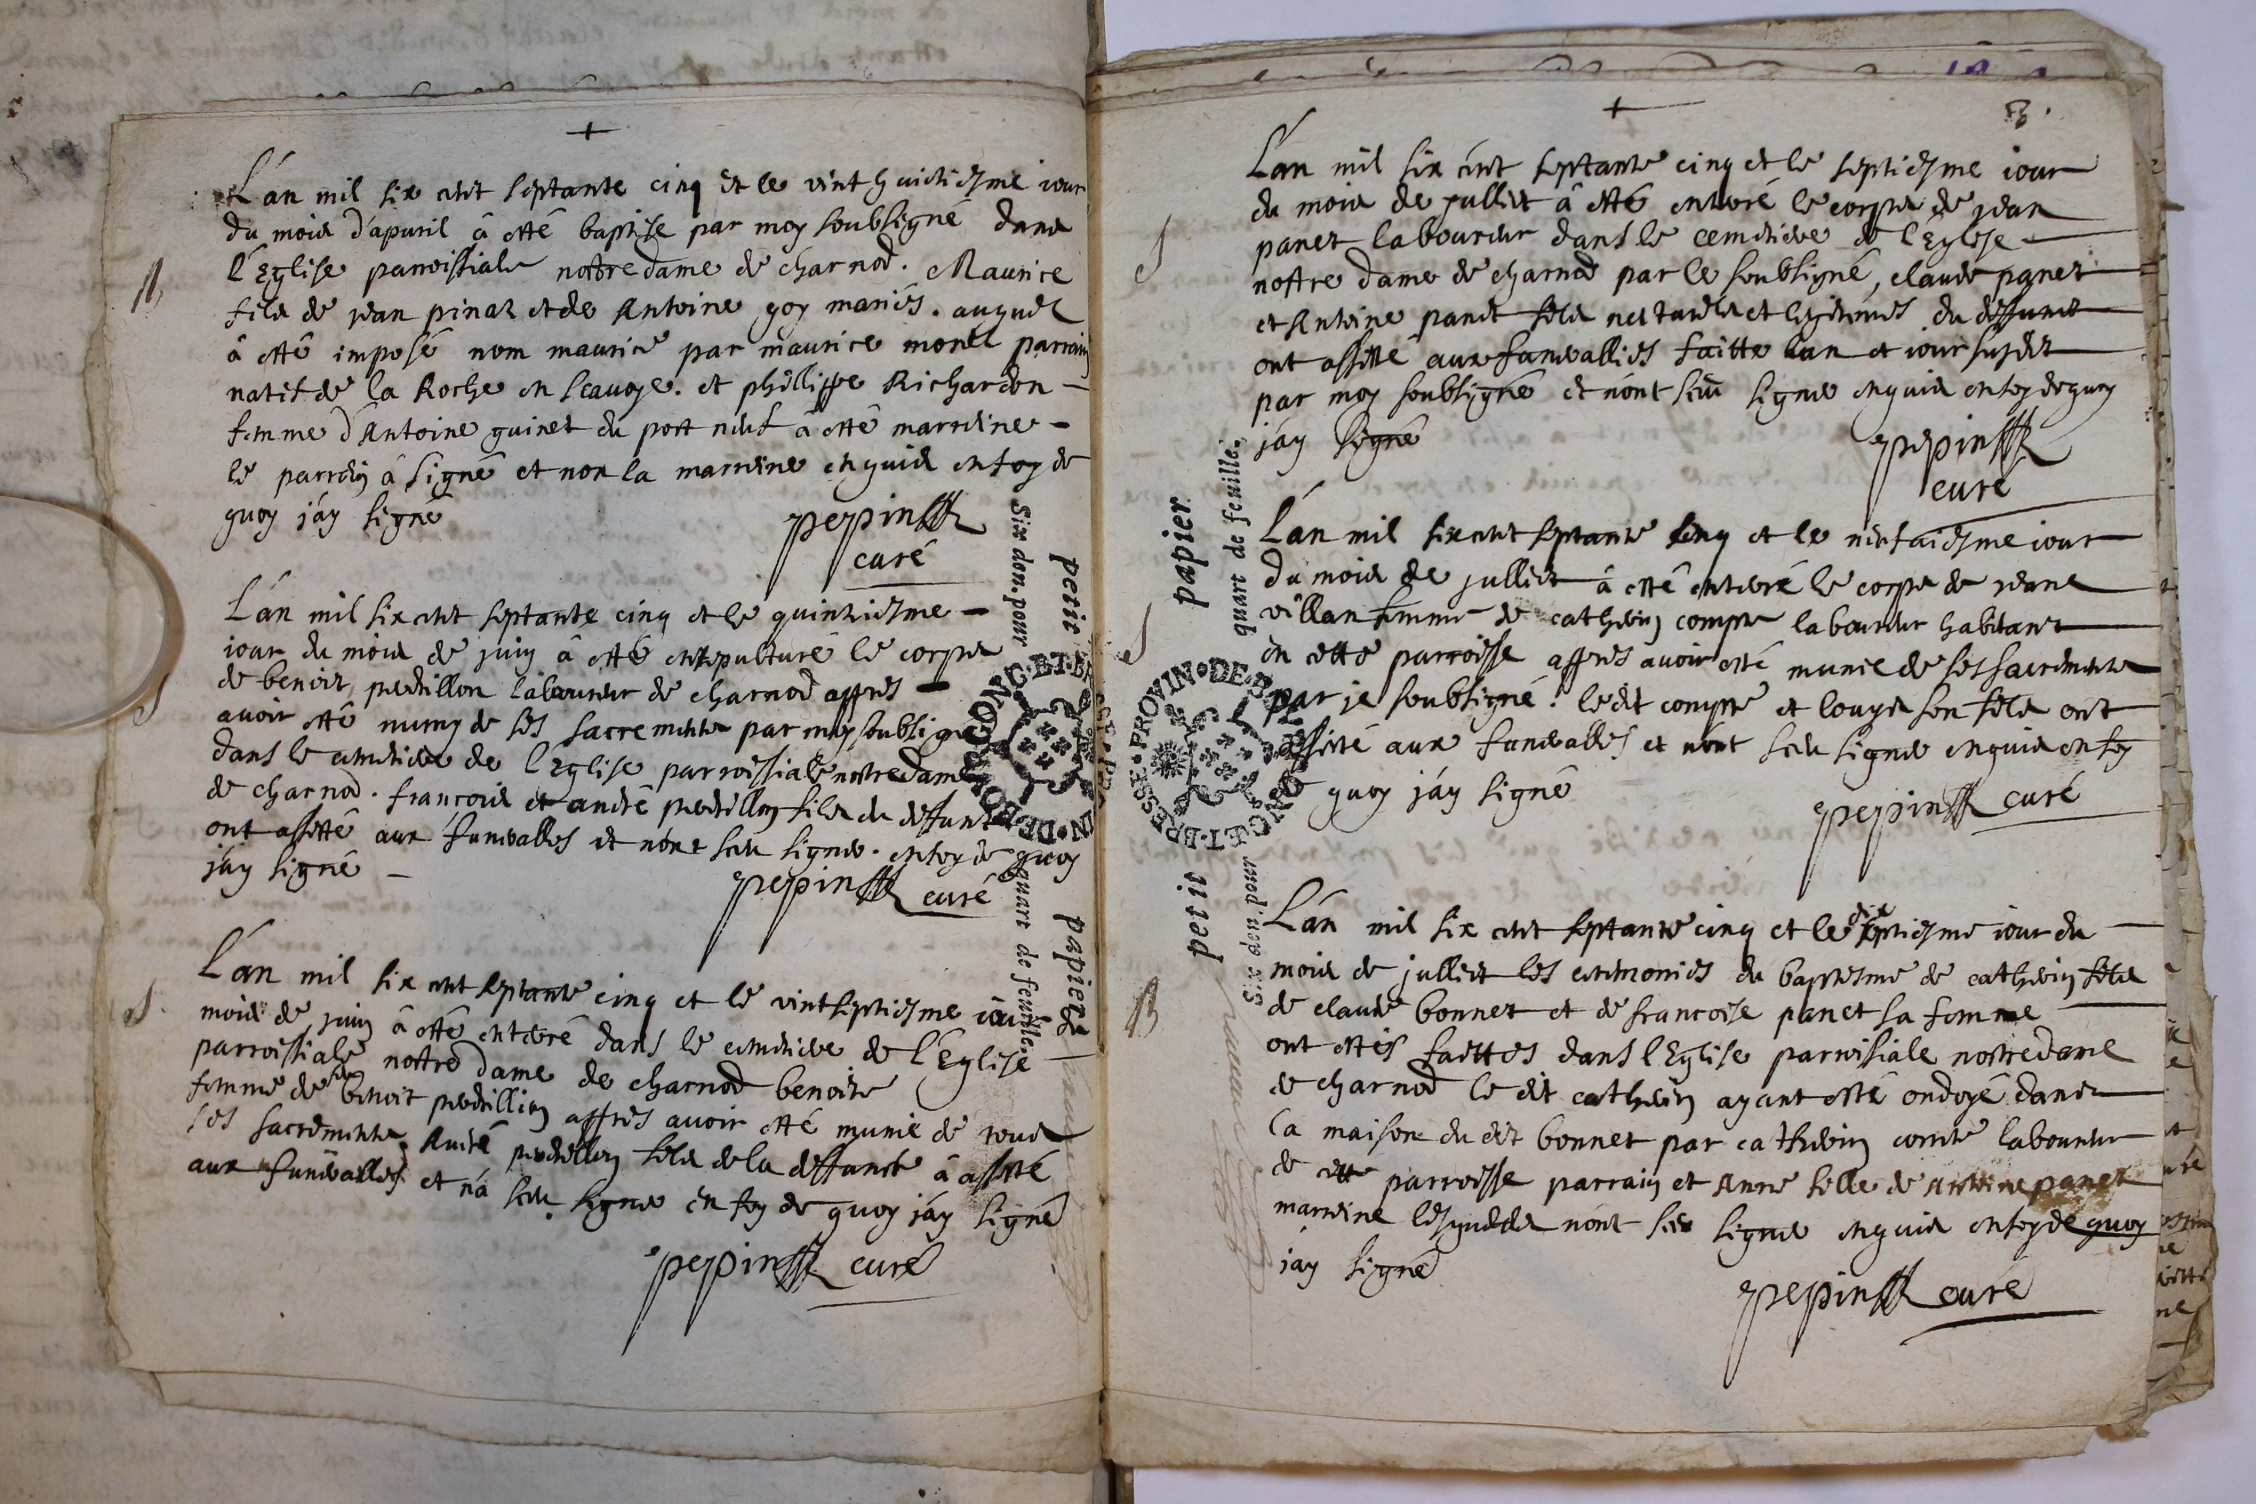 +
L'an mil six cent septante cinq et le vint huictiesme iour
du mois d'apuril â esté baptise par moy soubsigné dans
l'Eglise parroissiale nostre dame de charnod. Maurice
fils de jean pinar et de Antoine goy mariés. auquel
â esté imposé nom maurice par maurice morel parrain
natif de la Roche en scauoye. et phillippe Richardon
femme d'Antoine guinet du pont neuf â esté marreine
le parrein â signé et non la marreine enquis en foy de
quoy j'ay signé
pepin
curé
B
L'an mil six cent septante cinq et le quinziesme
iour du mois de juin â esté ensepulturé le corps
de benoit perdrillon laboureur de charnod appres
avoir esté muny de ses sacrements par moy soubsigné
dans le cemetiere de l'Eglise parroissiale nostre dame
de charnod. francois et andré perdrillon fils du deffunt
ont assisté aux funeralles et n'ont sceu signer. en foy de quoy
j'ay signé
pepin curé
S
L'an mil six cent septante cinq et le vint septiesme iour du
mois de juin â esté enterré dans le cemetiere de l'Eglise
parroissiale nostre dame de charnod benoite
femme de feu benoit perdrillon appres avoir esté munie de tous
ses sacrements, André perdrillon fils de la deffuncte â assisté
aux funeralles et n'a sceu signer en foy de quoy j'ay signé
pepin curé
S
petit papier
Six den. pour quart de feuille.
+
8.
L'an mil six cent septante cinq et le septiesme iour
du mois de jullet â esté enterré le corps de jean
panet laboureur dans le cemetiere de l'Eglise
nostre dame de charnod par le soubsigné, claude panet
et Antoine panet fils naturels et legitimes du deffunct
ont assisté aux funeralles faitte l'an et iour susdit
par moy soubsigné et n'ont sceu signer enquis en foy de quoy
j'ay signé
pepin
curé
S
L'an mil six cent septante cinq et le neufaiesme iour
du mois de jullet â esté enterré le corps de jeane
villan femme de catherin compte laboureur habitant
en cette parroisse appres avoir esté munie de ses sacrements
par je soubsigné. le dit compte et louys son fils ont
assisté aux funeralles et n'ont sceu signer enquis en foy
quoy j'ay signé
pepin curé
S
L'an mil six cent septante cinq et le dix septiesme iour du
mois de jullet les ceremonies du baptesme de catherin fils
de claude bonnet et de francoise panet sa femme
ont estés faittes dans l'Eglise parroisiale nostre dame
de charnod le dit catherin ayant esté ondoyé dans
la maison du dit bonnet par catherin comte laboureur
de cette parroisse parrain et Anne fille de Antoine panet
marreine lesquels n'ont sceu signer enquis en foy de quoy
j'ay signé
pepin curé
B
petit papier
Six den. pour quart de feuille.
PROVIN·DE·BRESSE